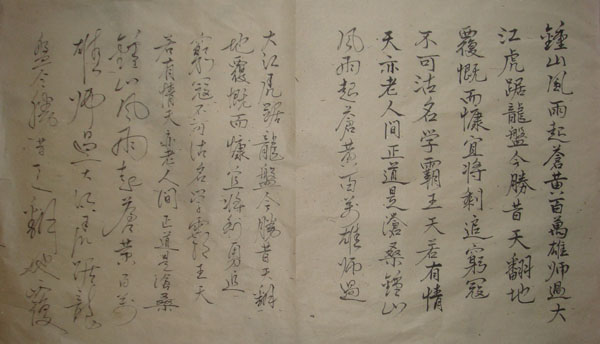 鍾山風雨起蒼黃百萬雄师過大
江虎踞龍盤今勝昔天翻地
覆慨而慷宜將剩追窮寇
不可沽名学霸王天若有情
天亦老人间正道是滄桑鍾山
風雨起蒼黄百萬雄师過
大江虎踞龍盤今勝昔天翻
地覆慨而慷宜将剩勇追
窮寇不可沽名学霸王天
若有情天亦老人间正道是滄桑
鍾山风雨起蒼黄百万
雄师過大江虎踞龍
盤今勝昔天翻地覆